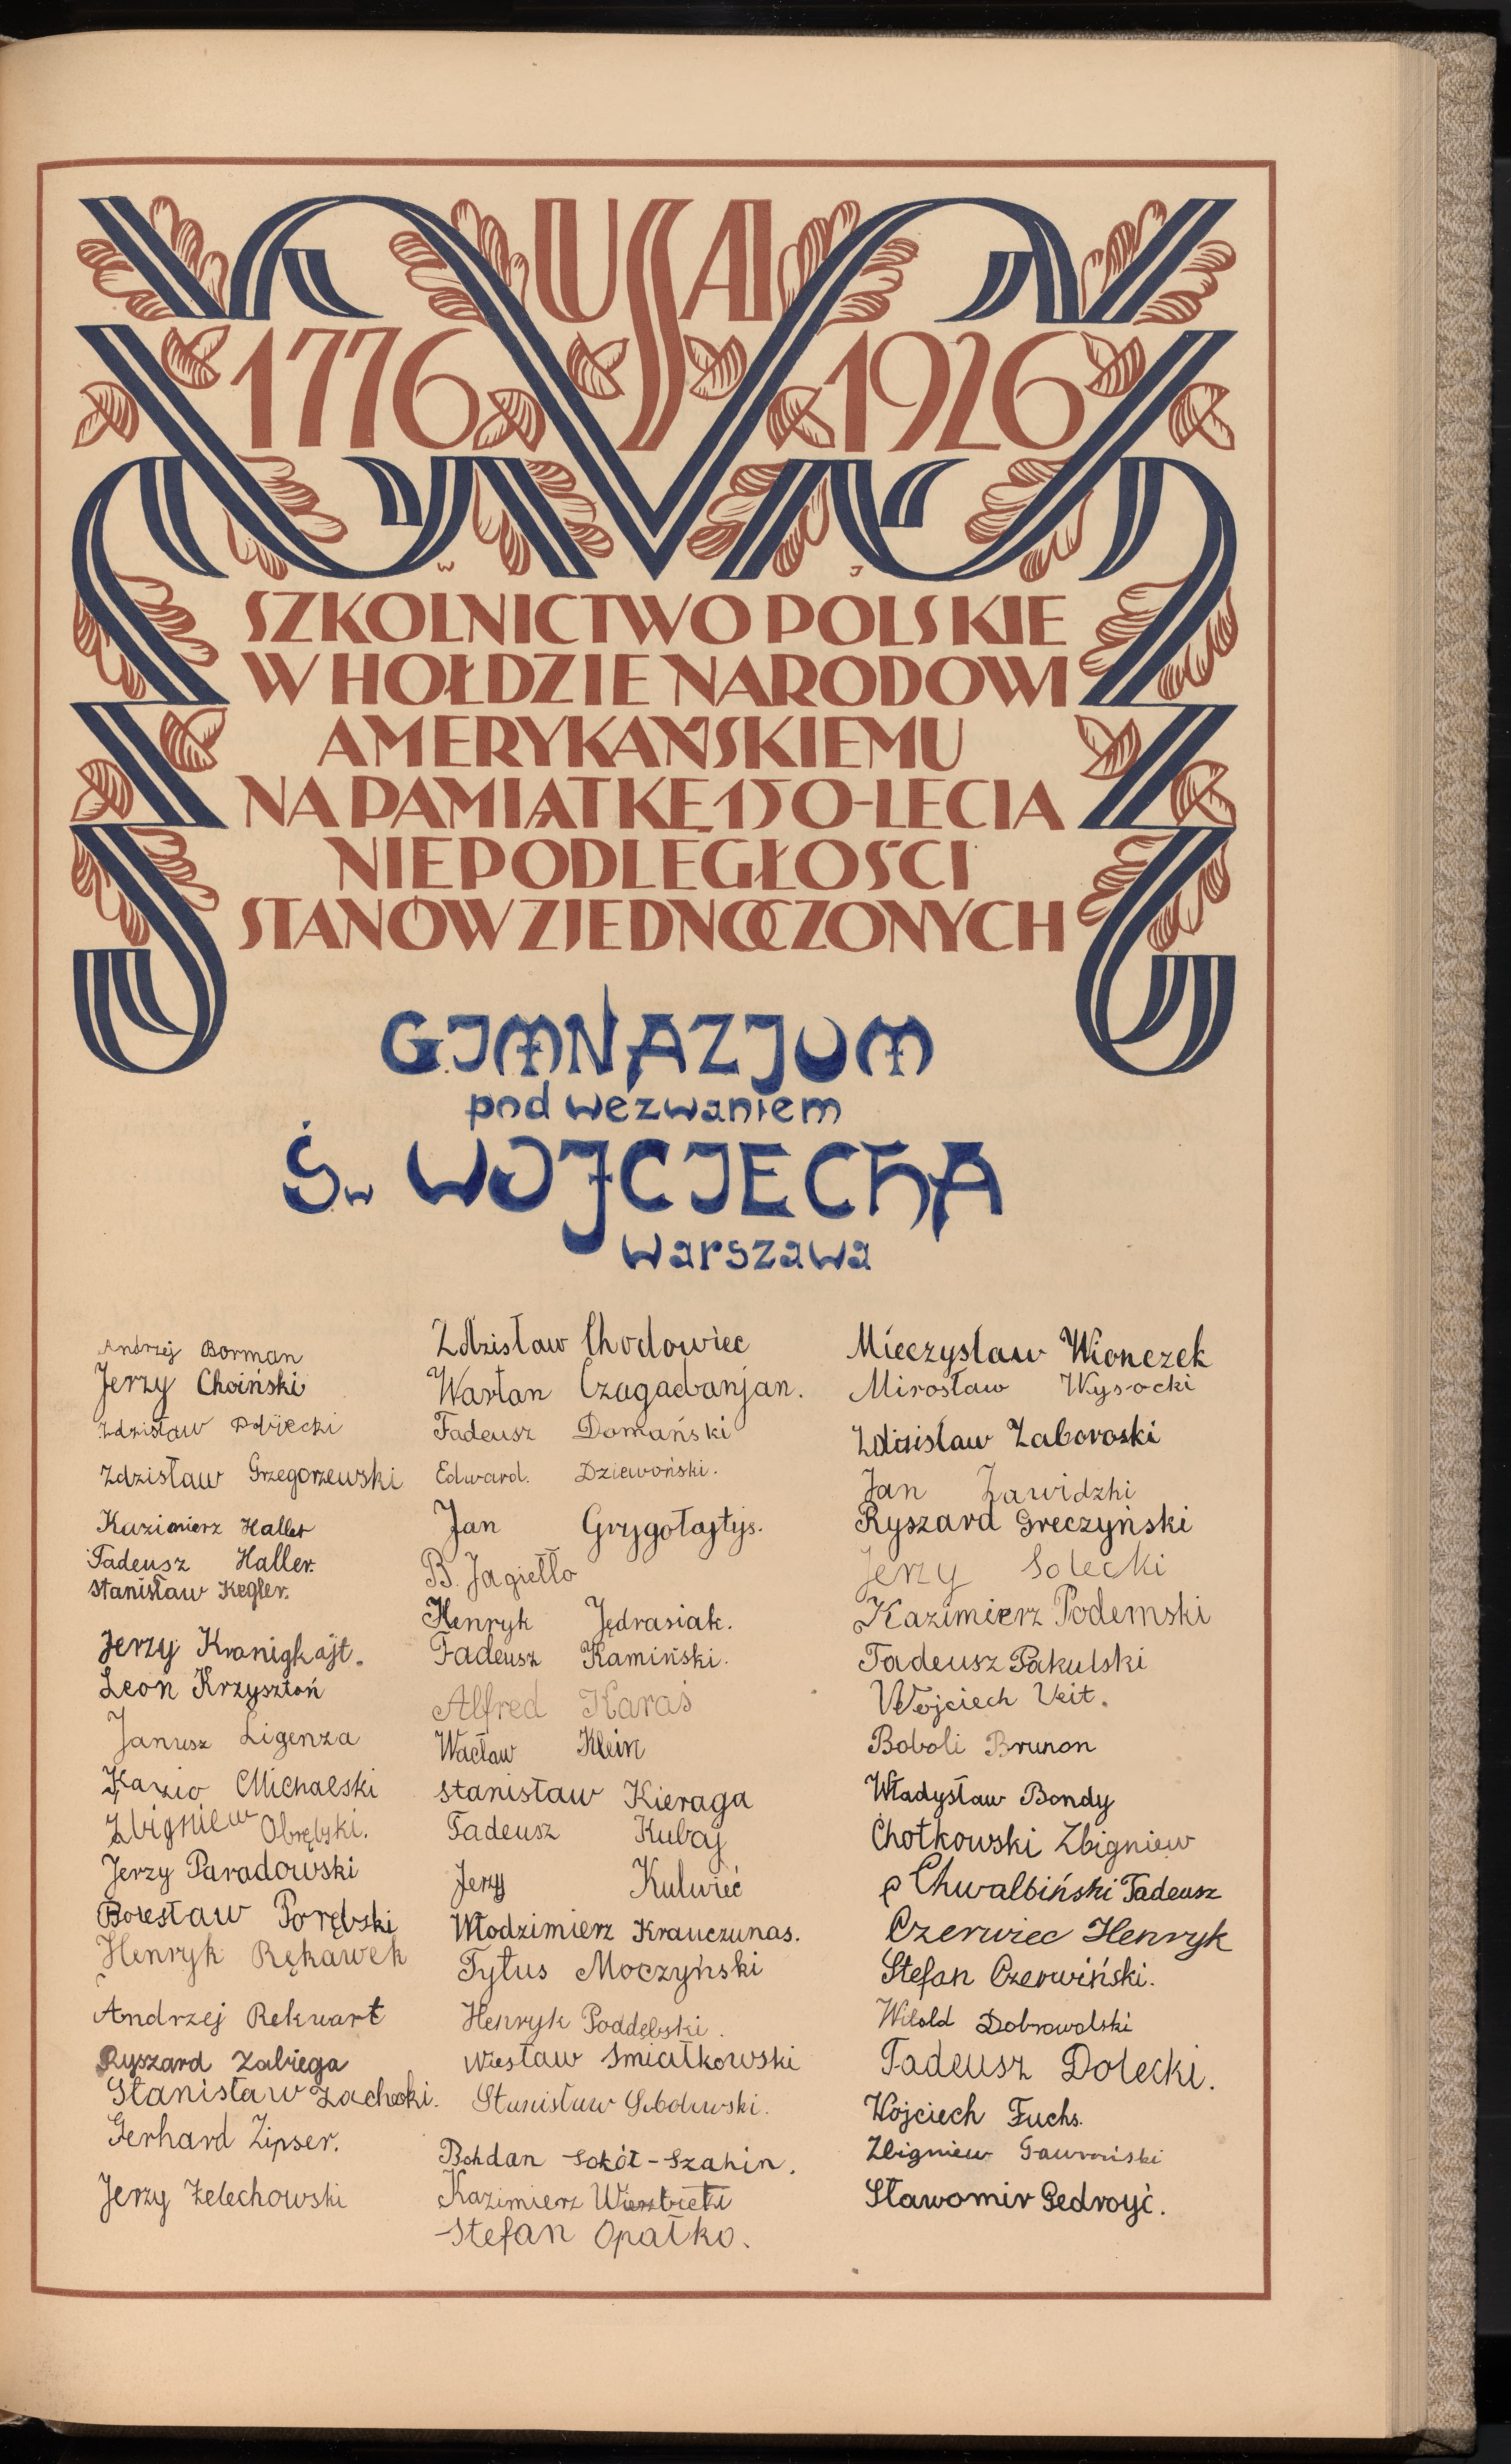 USA
1776 1926
W J
SZKOLNICTWO POLSKIE
W HOŁDZIE NARODOWI
AMERYKAŃSKIEMU
NA PAMIĄTKĘ 150-LECIA
NIEPODLEGŁOŚCI
STANÓW ZJEDNOCZONYCH
GIMNAZJUM
pod wezwaniem
Św WOJCIECHA
Warszawa
Andrzej Borman
Jerzy Choiński
Zdzisław
Zdzisław Grzegorzewski
Kazimierz Haller
Tadeusz Haller.
Stanisław Kegler.
Jerzy Kranigkajt.
Leon Krzysztoń
Janusz Ligenza
Kazio Michalski
Zbigniew Obrębski.
Jerzy Paradowski
Bolesław Porębski
Henryk Rękawek
Andrzej Rekwart
Ryszard Zabiega
Stanisław Zachecki.
Gerhard Zipser.
Jerzy Żelechowski
Zdzisław Chodowiec
Wartan Czagadanjan.
Tadeusz Domański
Edward. Dziewoński.
Jan Grygołajtys.
B. Jagiełło
Henryk Jędrasiak.
Tadeusz Kamiński.
Alfred Karaś
Wacław Klein
Stanisław Kieraga
Tadeusz Kubaj
Jerzy Kulwieć
Włodzimierz Krauczunas.
Tytus Moczyński
Henryk Poddębski.
Wiesław Smiałkowski
Stanisław Sobolewski.
Bohdan Sokół-Szahin.
Kazimierz Wierzbicki
Stefan Opałko.
Mieczysław Wionczek
Mirosław Wysocki
Zdzisław Zaborowski
Jan Zawidzki
Ryszard Greczyński
Jerzy Solecki
Kazimierz Podemski
Tadeusz Pakulski
Wojciech Veit.
Boboli Brunon
Władysław Bondy
Chotkowski Zbigniew
Chwalbiński Tadeusz
Czerwiec Henryk
Stefan Czerwiński.
Witold Dobrowolski
Tadeusz Dolecki.
Wojciech Fuchs.
Zbigniew Gawroński
Sławomir Gedroyć.